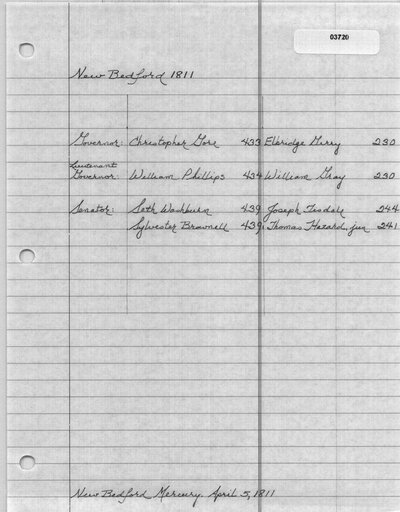 03720
New Bedford 1811
Governor: Christopher Gore 433 Elbridge Gerry 230
Lieutenant
Governor: William Phillips 434 William Gray 230
Senator: Seth Washburn 439 Joseph Tisdale 244
Sylvester Brownell 439 Thomas Hazard, jun 241
New Bedford Mercury. April 5, 1811